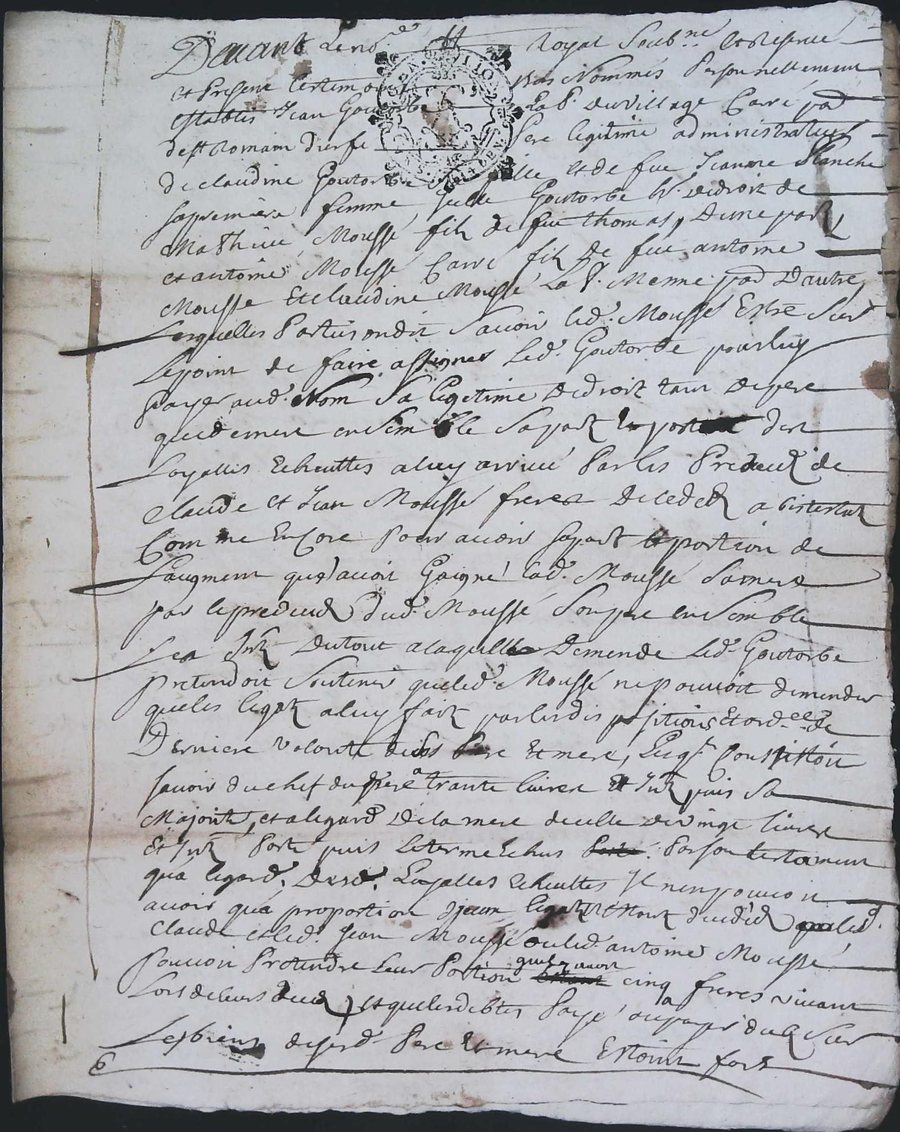 Devant Le no.re Royal Soub.ne Et Reservé
et Presens les tesmo Bas Nommés Personnellement
estably Jean Goutorbe La P. du village Carré pad
de st Romain d'urfé Pere legitime administrateur
de claudine Goutorbe fille et de feue Jeanne Planche
sa premiere femme icelle Goutorbe de droit de
Mathieu Moussé fils de feu thomas, d'une part
et antoine Moussé Carré fils de feu antoine
Moussé Et claudine Moussé La P. Meme pad D'autre
Lesquelles Parties ondit Savoir led. Moussé Estre Sur
Le point de faire assigner Led. Goutorbe pour luy
payer aud. Nom Sa legitime de droit tant de pere
que de mere ensemble Sa part Et portion des
Loyalles Echeuttes a luy arrivé Par les Predeced de
Claude et Jean Moussé freres decedes abintestat
Comme Encore Pour avoir sa part Et portion de
Laugment qu'avoit Gaigné lad. Moussé Sa mere
par le predeced dud. Moussé Son pere ensemble
Les Int. du tout a laquelle Demende Led. Goutorbe
pretendoit Soutenir que led. Moussé ne pouvoit demender
que les legat a luy fait par les dispositions Et ord.ce de
Derniere volonté de ses Pere Et mere, Consistion
savoir du chef du Pere a trante livres Et Int. puis Sa
Majorité, et a legard De la mere de celle de vingt livres
Et Int. Porté puis Le terme Echus Par son testament
qua legard. Desd. Loyalles Echeuttes Il n'en pouvoir
avoir qu'a proportion
Claude et led. Jean Moussé ou led. antoine Moussé
Pouvoir Pretendre Leur Portion quil y avoit cinq freres vivant
Lors de leurs deced, et que les debtes Payé ou payer Sur
Les biens desd. Pere Et mere Estoint fors
6